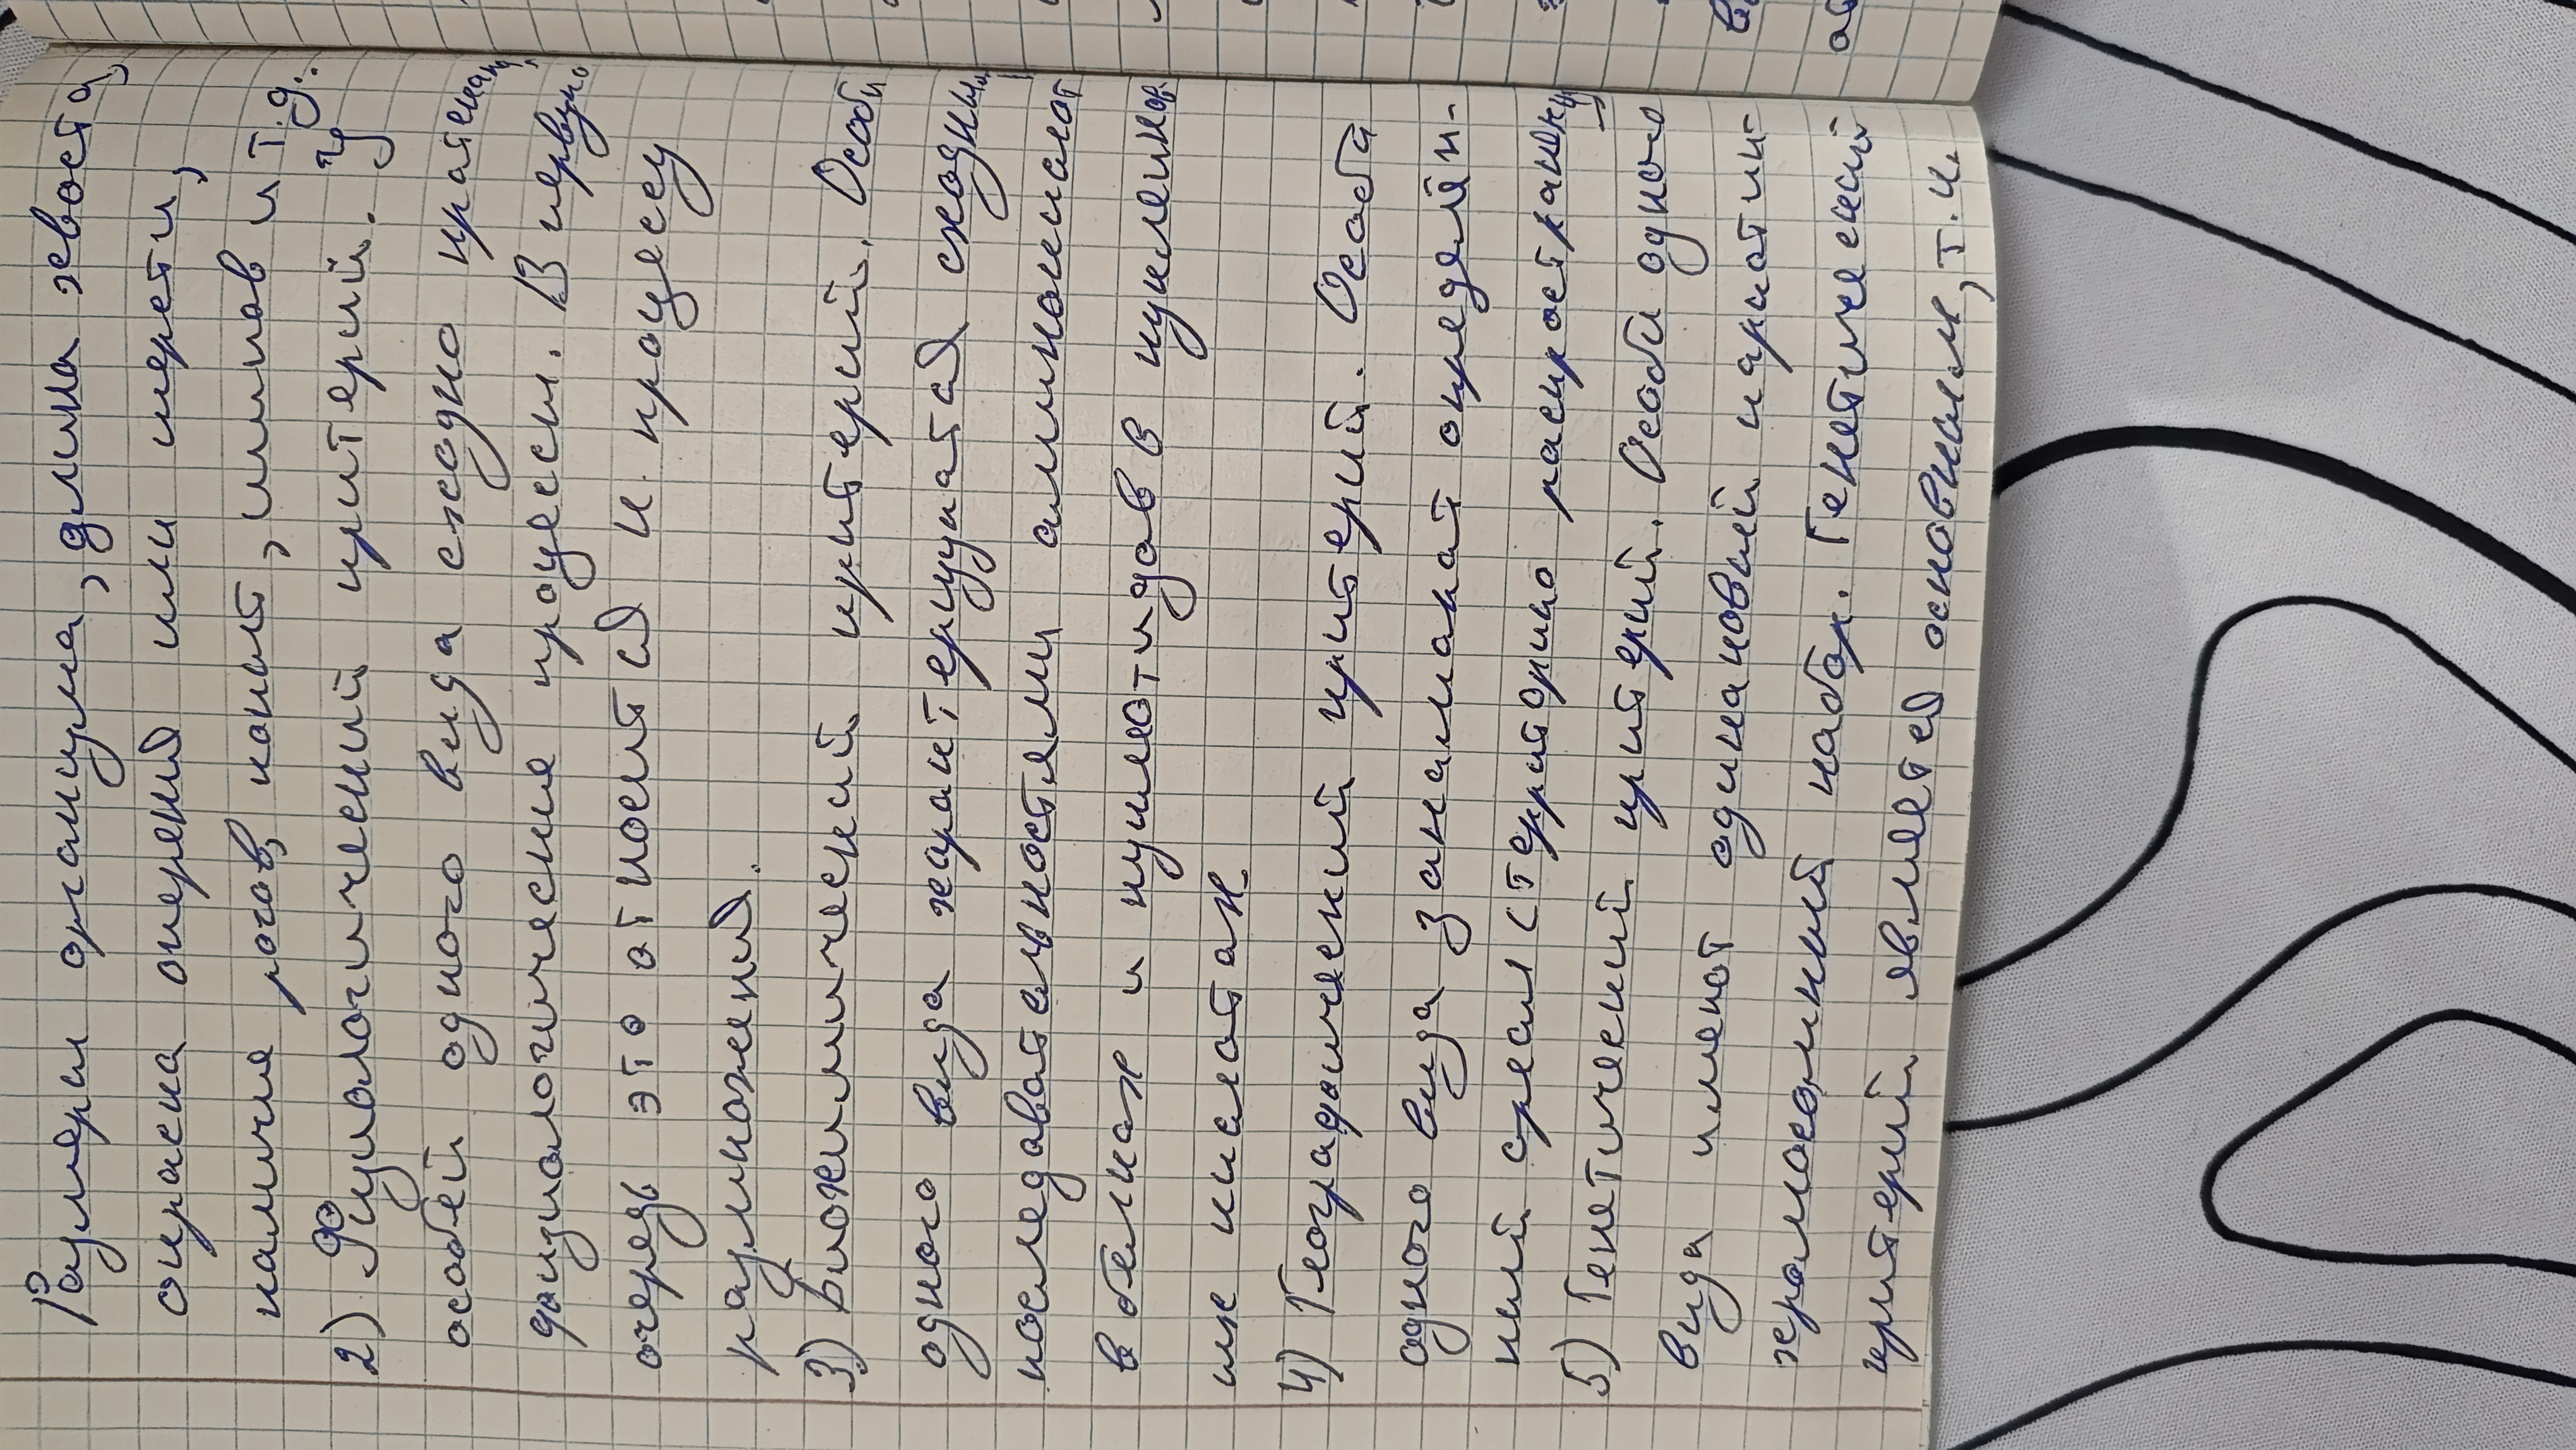 Размеры организма, длина хвоста,
окраска оперения или шерсти,
наличие рогов, копыт, шипов и т.д.
2) Физиологический критерий. У
особей одного вида сходно протекают
физиологические процессы. В первую
очередь это относится к процессу
размножения.
3) Биохимический критерий. Особи
одного вида характеризуются сходными
последовательностями аминокислот
в белках и нуклеотидов в нуклеино-
ых кислотах.
4) Географический критерий. Особи
одного вида занимают определен-
ный ареал (территорию распространения)
5) Генетический критерий. Особи одного
вида имеют одинаковый кариотип-
хромосомный набор. Генетический
критерий является основным, т.к.
в
об